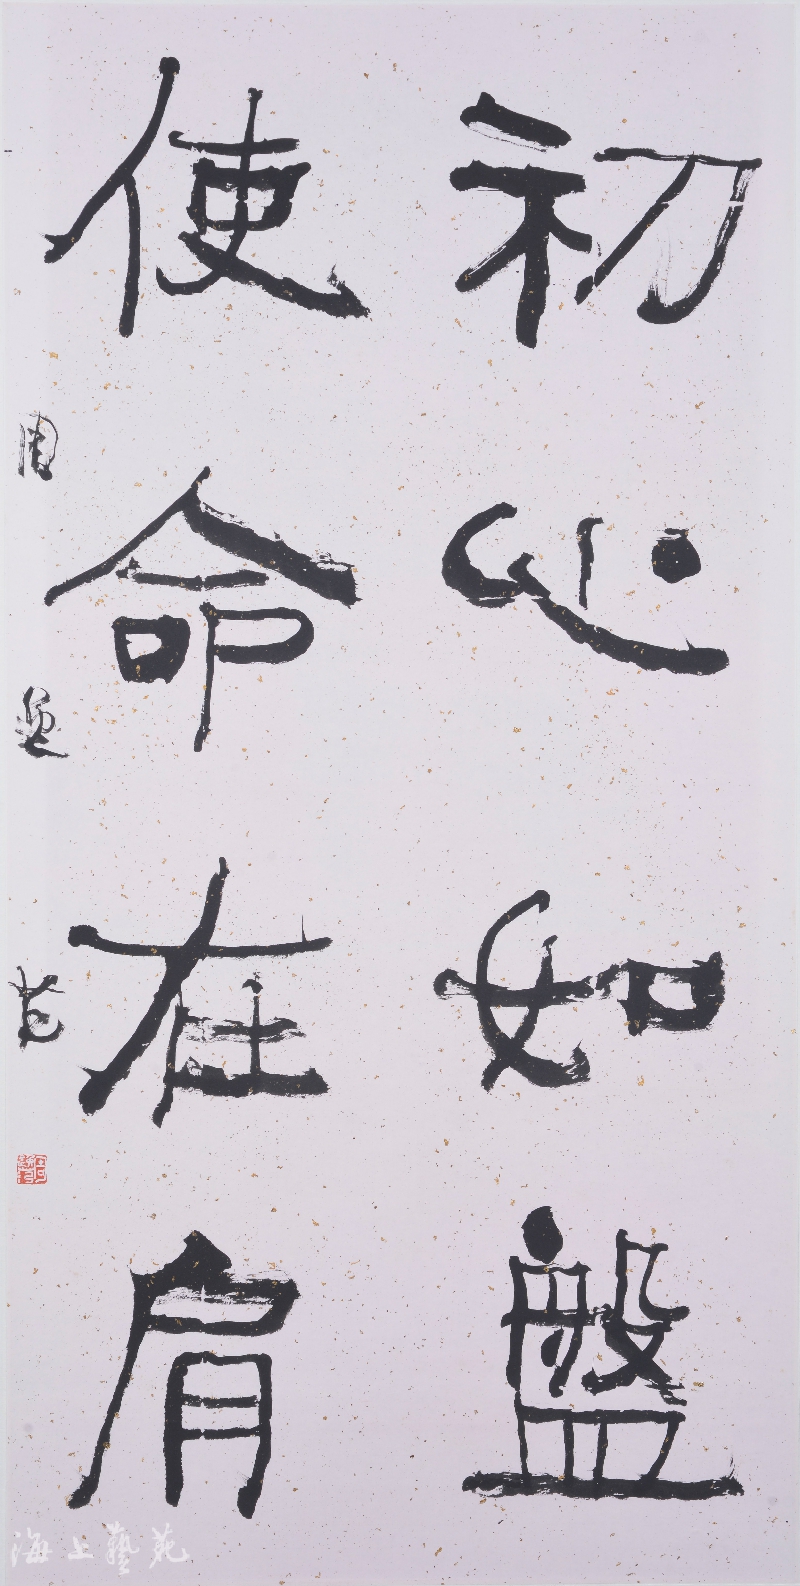 初心如盤
使命在肩
周
海上藝苑